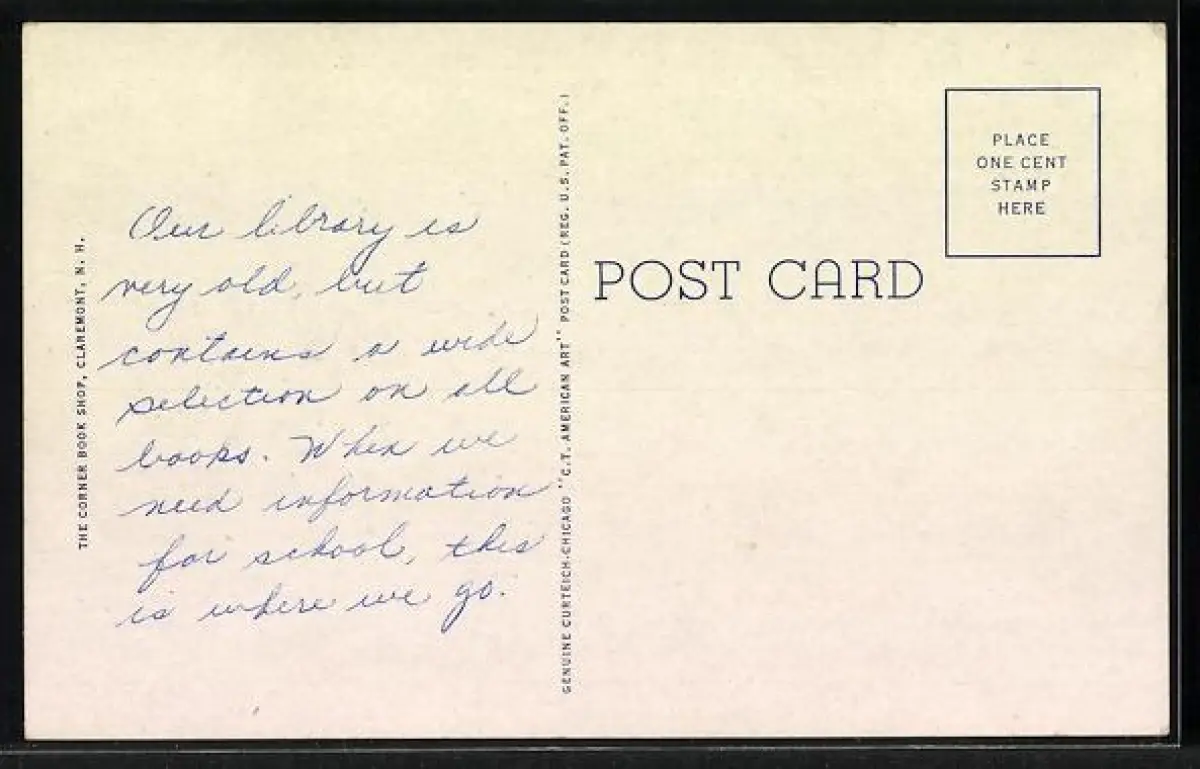 THE CORNER BOOK SHOP, CLAREMONT, N. H.
Our library is
very old but
contains a wide
selection on all
books. When we
need information
for school, this
is where we go.
GENUINE CURTEICH-CHICAGO "C.T. AMERICAN ART" POST CARD (REG. U.S. PAT. OFF.)
POST CARD
PLACE
ONE CENT
STAMP
HERE